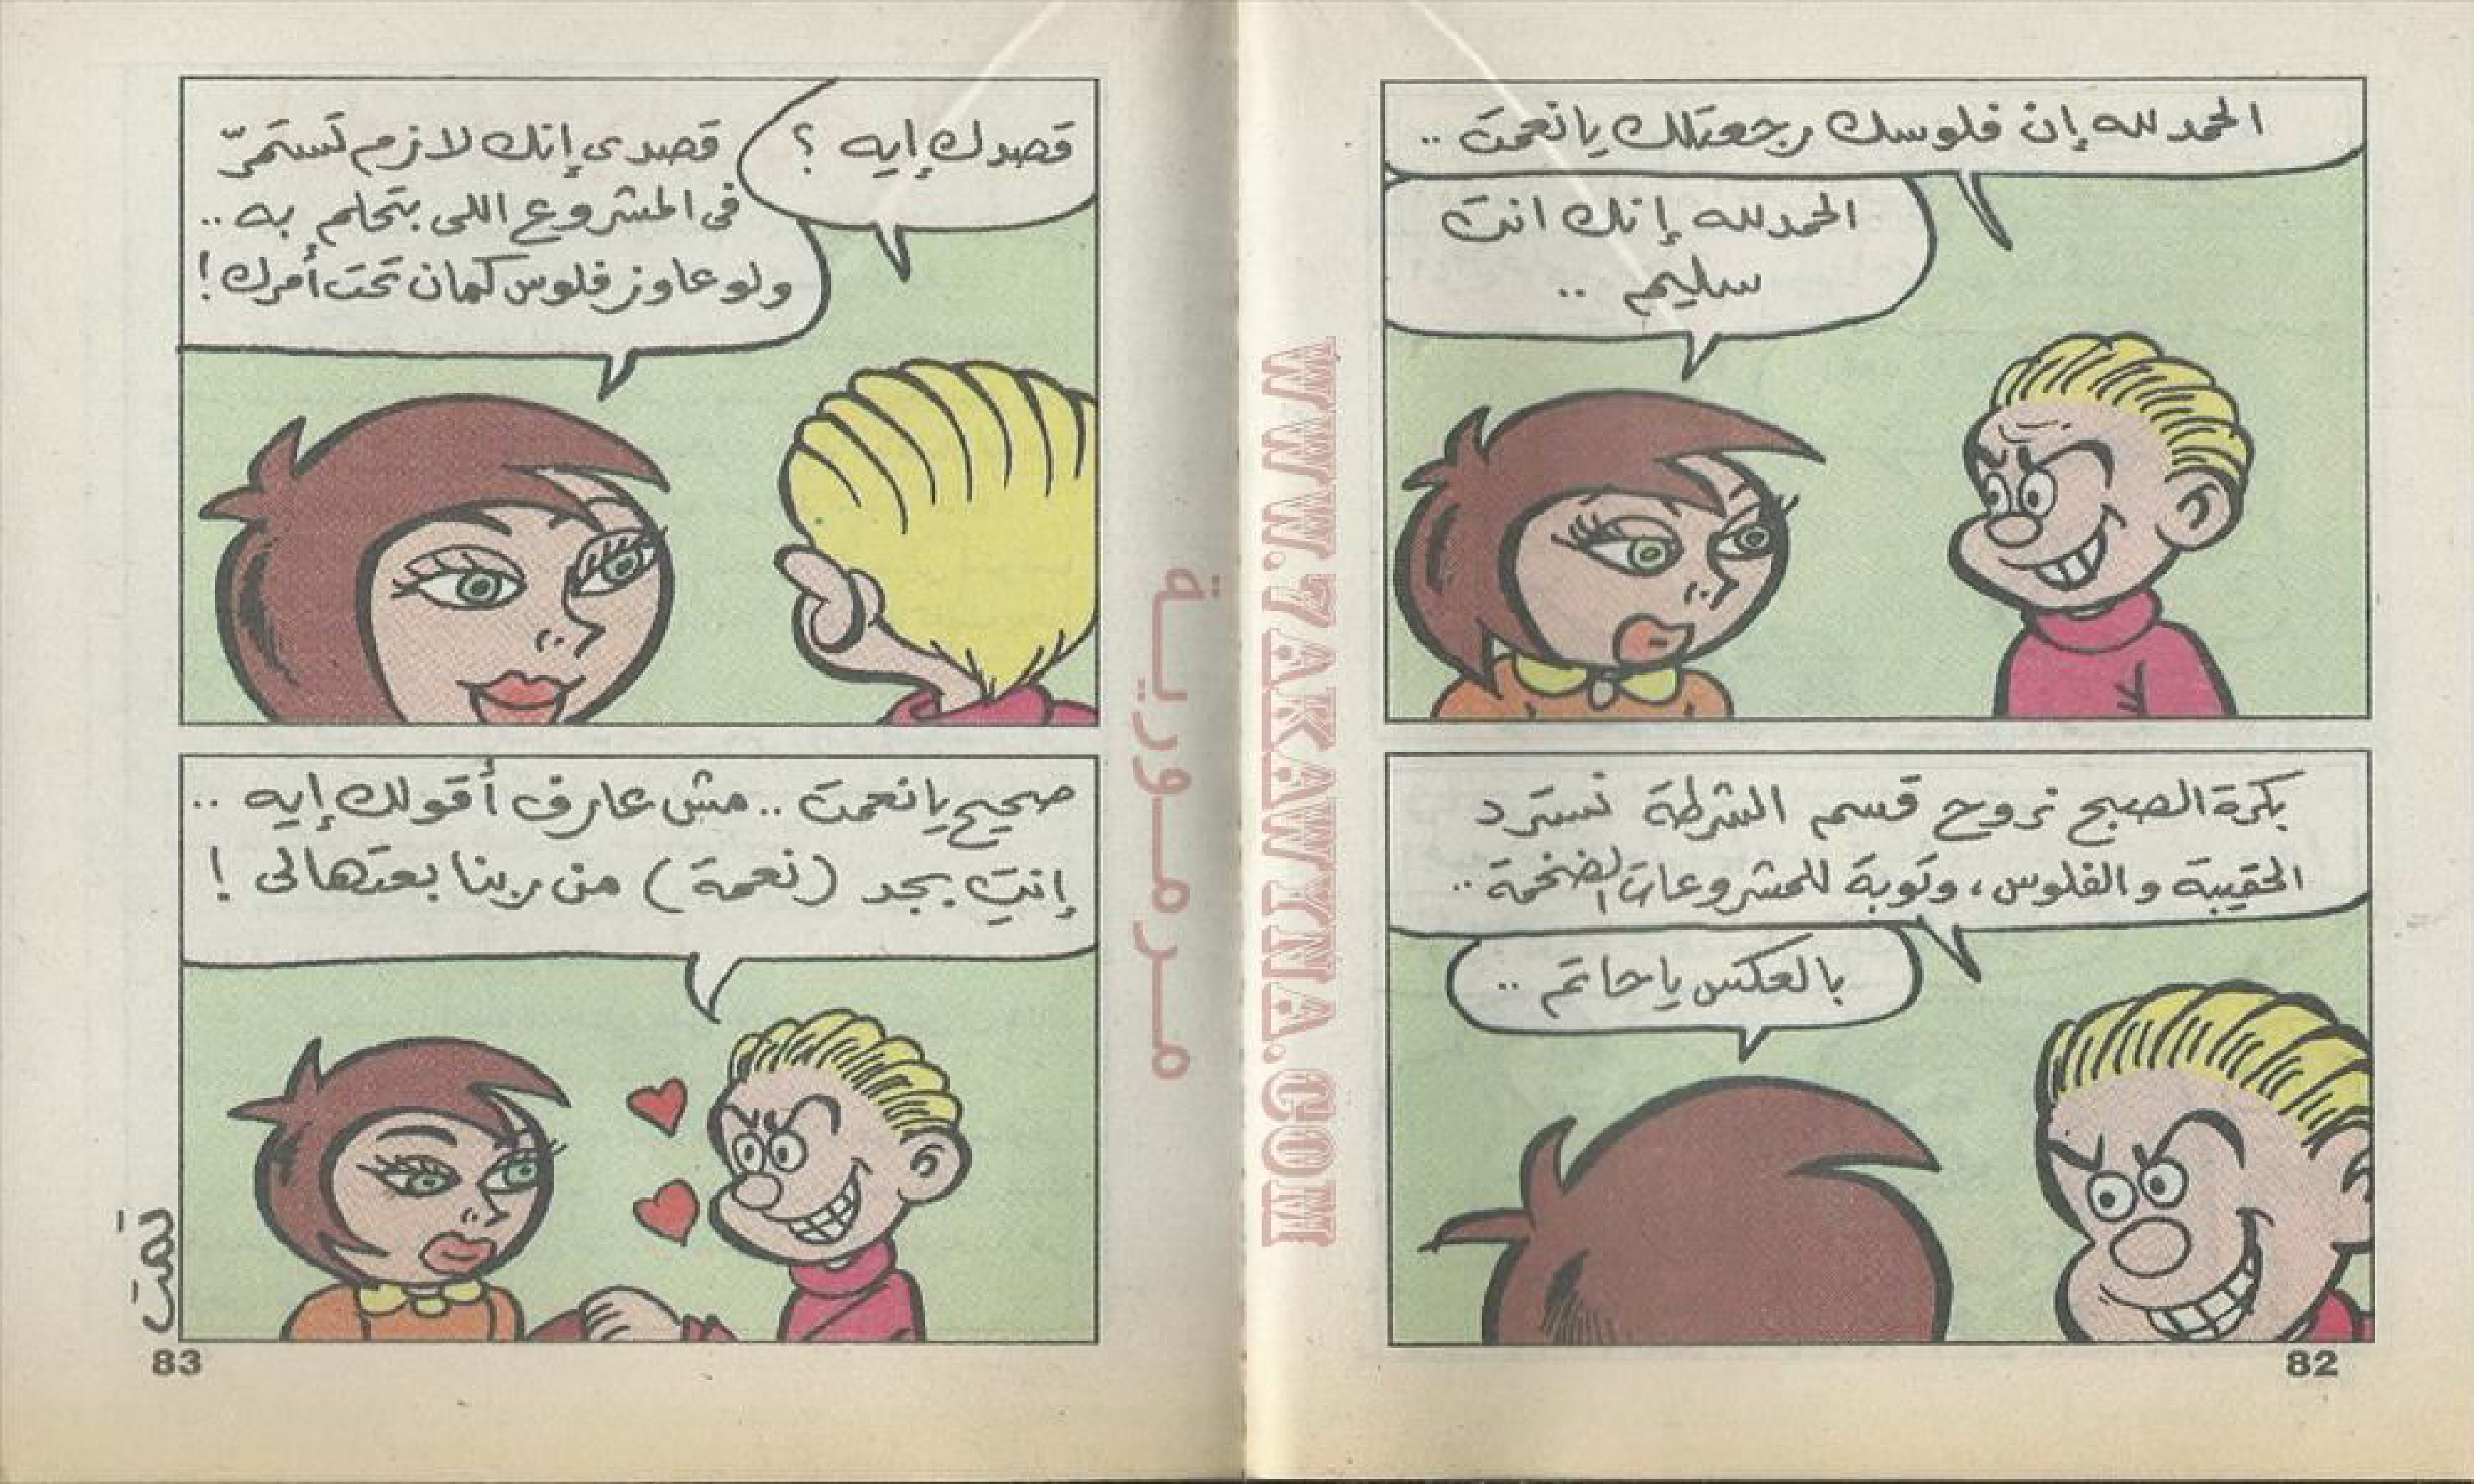 الحمد لله إن فلوسك رجعتلك يا نعمت ..
الحمد لله إنك انت
سليم ..
بكرة الصبح نروح قسم الشرطة نسترد
الحقيبة والفلوس، وتوبة للمشروعات الضخمة ..
بالعكس يا حاتم ..
82
قصدك إيه ؟
قصدى إنك لازم تستمرّ
فى المشروع اللى بتحلم به ..
ولو عاوز فلوس كمان تحت أمرك !
صحيح يا نعمت .. مش عارف أقولك إيه ..
إنتِ بجد (نعمة) من ربنا بعتهالى !
تمت
83
مرمورية
WWW.7AKAWYNA.COM